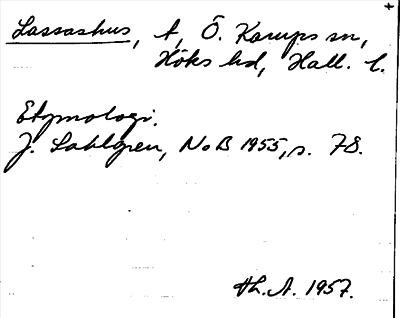 Lassashus, t, Ö. Karups sn,
Höks hd, Hall. l.
Etymologi.
J. Sahlgren, NoB 1955, s. 78.
Th. A. 1957.